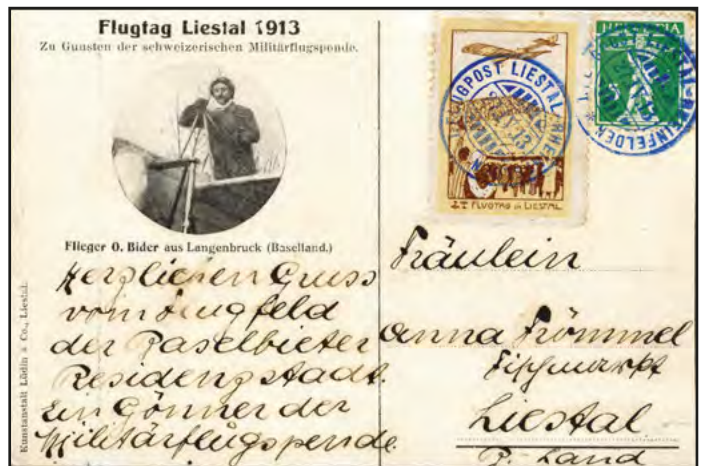 Flugtag Liestal 1913
Zu Gunsten der schweizerischen Militärflugspende.
Flieger O. Bider aus Langenbruck (Baselland.)
Kunstanstalt Lüdin & Co., Liestal.
Herzlichen Gruss
vom Flugfeld
der Baselbieter
Residenzstadt.
Ein Gönner der
Militärflugspende.
HELVETIA
5
FLUGPOST LIESTAL-RHEINFELDEN
FLUGTAG in LIESTAL
LIESTAL-RHEINFELDEN
Fräulein
Anna Frömmel
Fischmarkt
Liestal
B.-Land